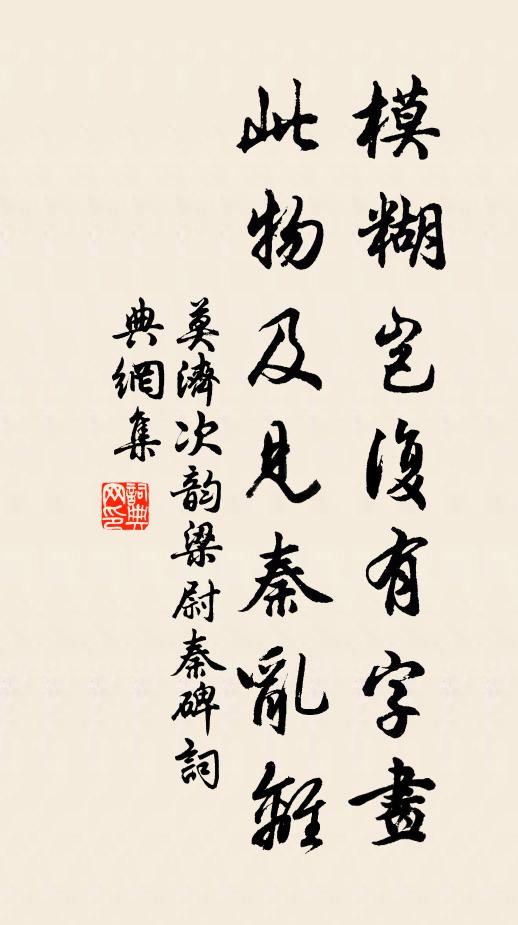 模糊豈復有字畫
此物及見秦亂離
莫濟次韵梁尉秦碑詞
典網集
詞典
网印